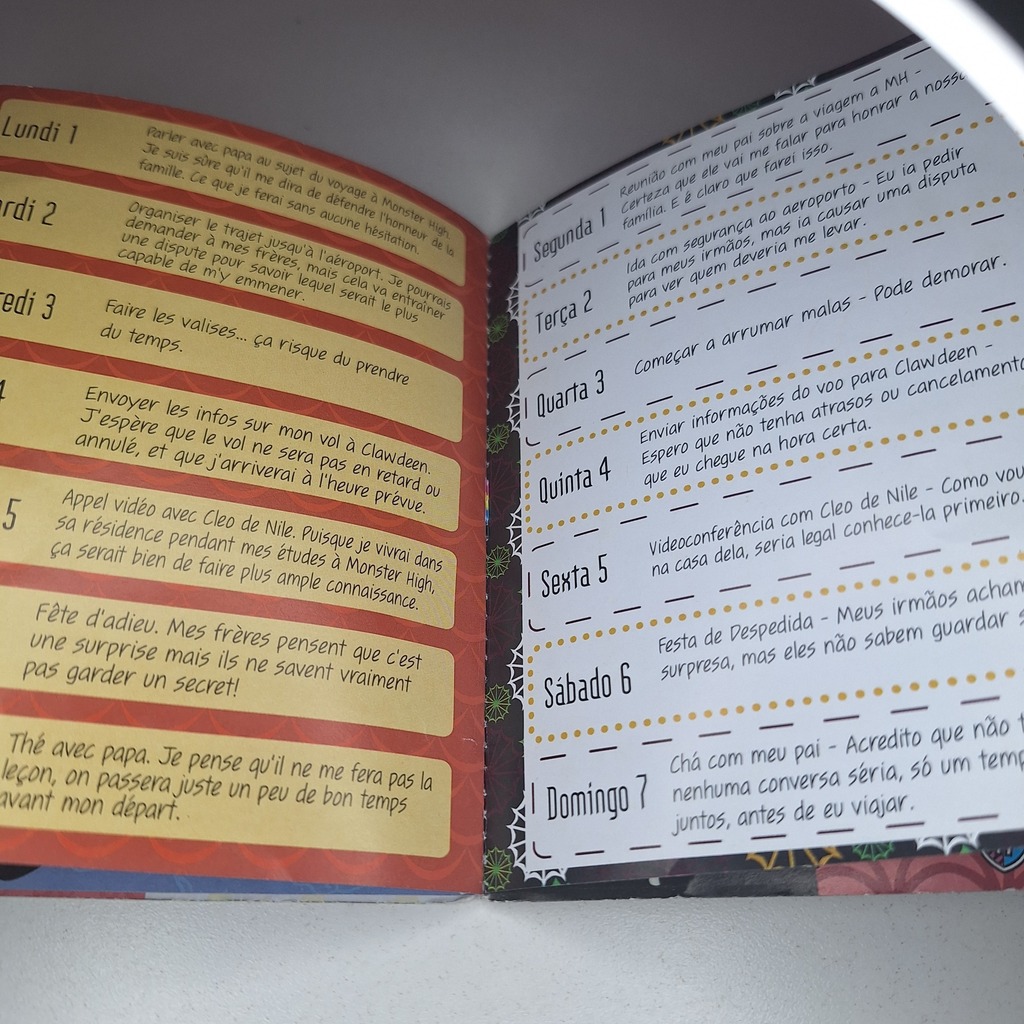 Lundi 1
Parler avec papa au sujet du voyage à Monster High.
Je suis sûre qu'il me dira de défendre l'honneur de la
famille. Ce que je ferai sans aucune hésitation.
rdi 2
Organiser le trajet jusqu'à l'aéroport. Je pourrais
demander à mes frères, mais cela va entraîner
une dispute pour savoir lequel serait le plus
capable de m'y emmener.
edi 3
Faire les valises... ça risque du prendre
du temps.
4
Envoyer les infos sur mon vol à Clawdeen.
J'espère que le vol ne sera pas en retard ou
annulé, et que j'arriverai à l'heure prévue.
5
Appel vidéo avec Cleo de Nile. Puisque je vivrai dans
sa résidence pendant mes études à Monster High,
ça serait bien de faire plus ample connaissance.
Fête d'adieu. Mes frères pensent que c'est
une surprise mais ils ne savent vraiment
pas garder un secret!
Thé avec papa. Je pense qu'il ne me fera pas la
leçon, on passera juste un peu de bon temps
avant mon départ.
Segunda 1
Reunião com meu pai sobre a viagem a MH -
Certeza que ele vai me falar para honrar a nossa
família. E é claro que farei isso.
Terça 2
Ida com segurança ao aeroporto - Eu ia pedir
para meus irmãos, mas ia causar uma disputa
para ver quem deveria me levar.
Quarta 3
Começar a arrumar malas - Pode demorar.
Quinta 4
Enviar informações do voo para Clawdeen -
Espero que não tenha atrasos ou cancelamento
que eu chegue na hora certa.
Sexta 5
Videoconferência com Cleo de Nile - Como vou
na casa dela, seria legal conhece-la primeiro.
Sábado 6
Festa de Despedida - Meus irmãos acham
surpresa, mas eles não sabem guardar s
Domingo 7
Chá com meu pai - Acredito que não t
nenhuma conversa séria, só um temp
juntos, antes de eu viajar.